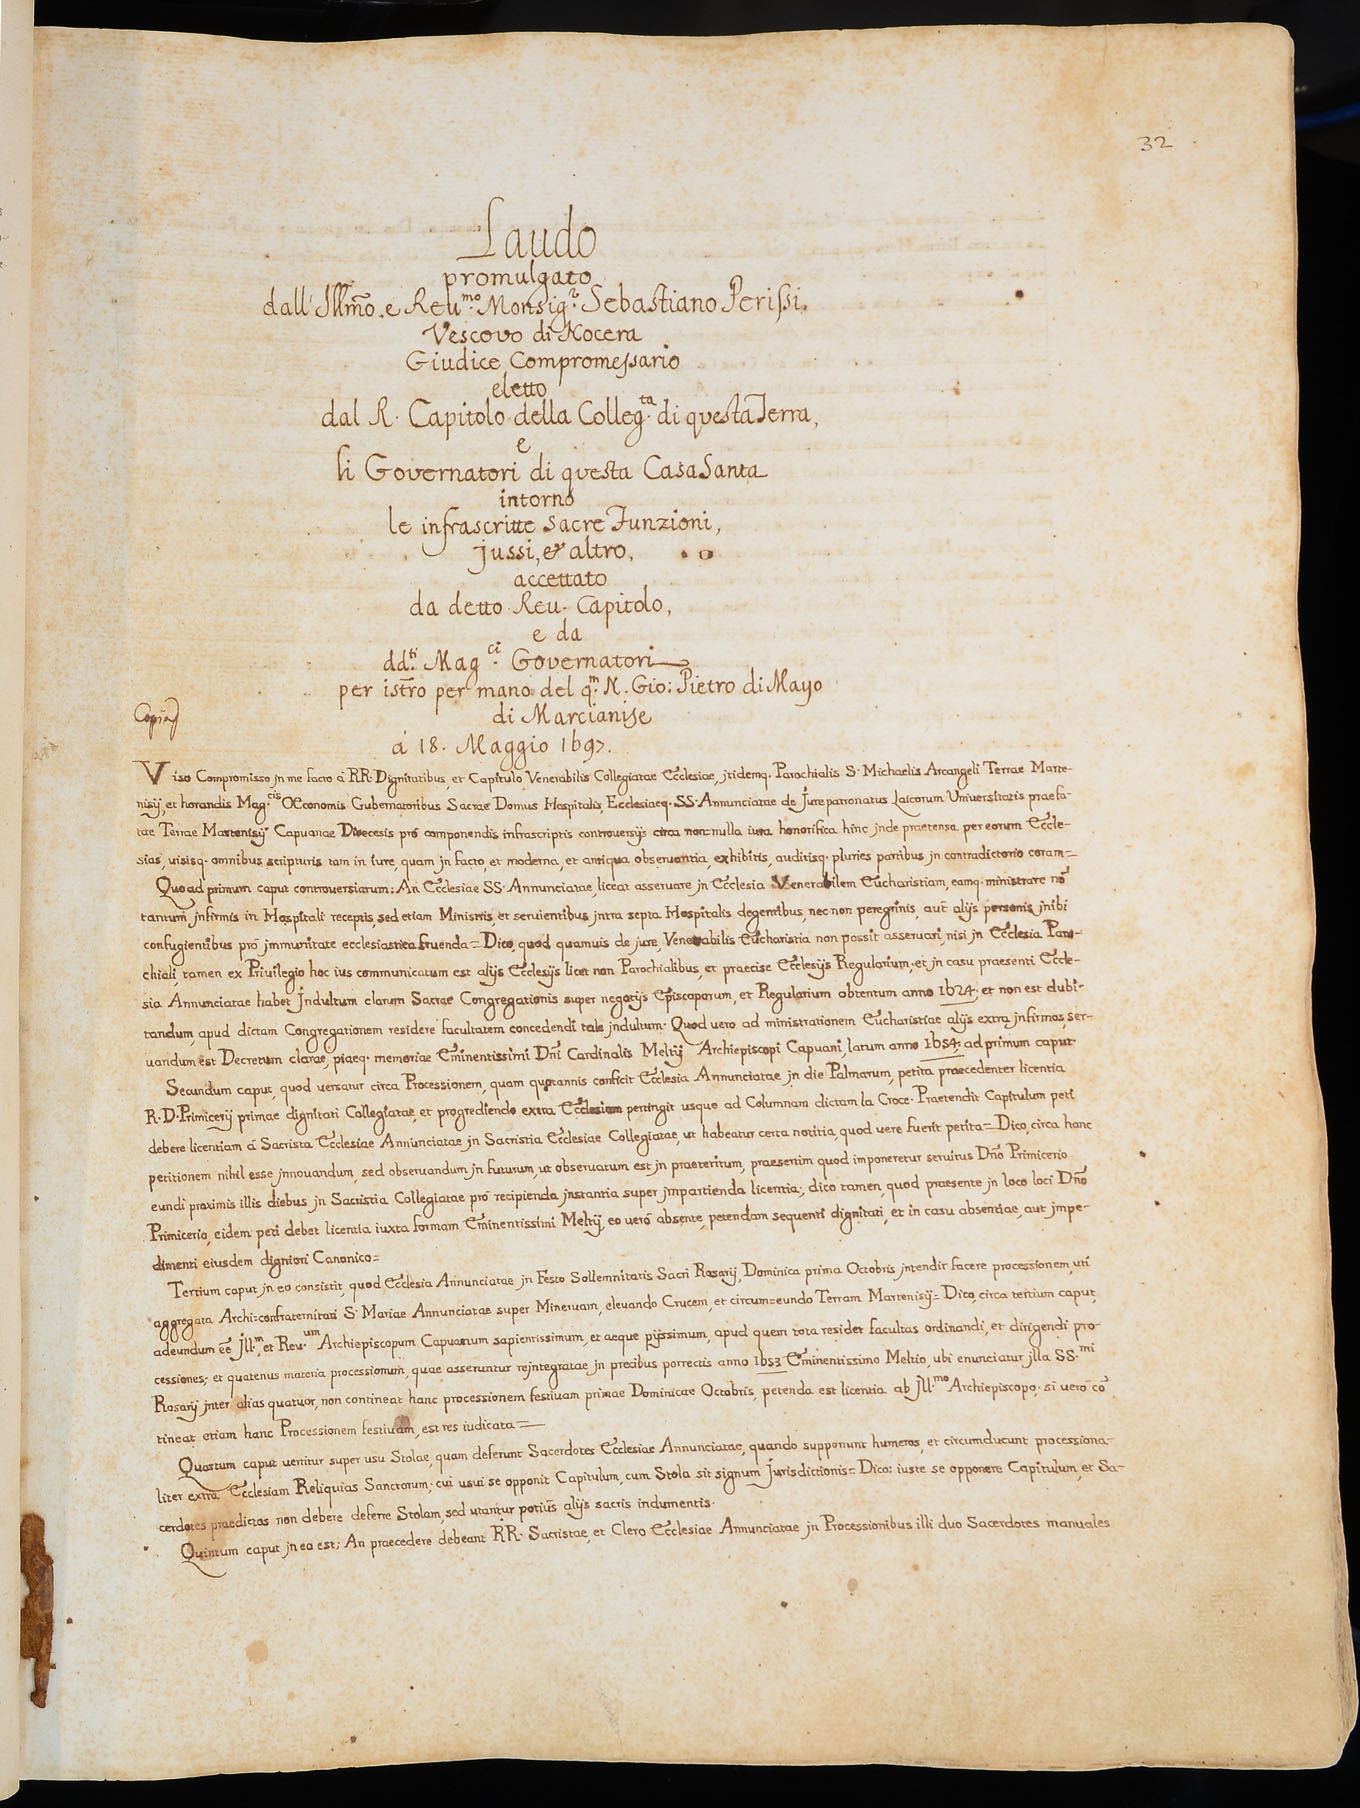 32
Laudo
promulgato
dall' Illmõ. e Reu.mo Monsig.r Sebastiano Perissi.
Vescovo di Nocera
Giudice Compromessario
eletto
dal R. Capitolo della Colleg.ta di questa Terra,
e
li Governatori di questa Casa Santa
intorno
le infrascritte sacre Funzioni,
jussi, & altro,
accettato
da detto Reu. Capitolo,
e da
dd.ti Mag.ci Governatori
per istr̃o per mano del q.m N. Gio: Pietro di Mayo
di Marcianise
Copia
à 18. Maggio 1697.
Viso Compromisso jn me facto à RR. Dignitatibus, et Capitulo Venerabilis Collegiatae Ecclesiae, jtidemq. Parochialis S. Michaelis Arcangeli Terrae Marte-
nisij, et horandis Mag.cis Oeconomis Gubernatoribus Sacrae Domus Hospitalis, Ecclesiaeq. SS. Annunciatae de Jurepatronatus Laicorum Universitatis praefa-
tae Terrae Martenisij Capuanae Diocesis prò componendis infrascriptis controversijs circa non nulla iura honorifica hinc jnde praetensa per eorum Eccle-
sias, uisisq. omnibus scripturis tam in iure, quam jn facto, et moderna, et antiqua obseruantia, exhibitis, auditisq. pluries partibus jn contradictorio coram=
Quoad primum caput controversiarum: An Ecclesiae SS. Annunciatae, liceat asseruare jn Ecclesia Venerabilem Eucharistiam, eamq. ministrare nõ
tantum jnfirmis in Hospitali receptis, sed etiam Ministris, et seruientibus jntra septa Hospitalis degentibus, nec non peregrinis, aut alijs personis jnibi
confugientibus prò jmmunitate ecclesiastica fruenda= Dico, quod quamuis de jure, Venerabilis Eucharistia non possit asseruari, nisi jn Ecclesia Paro-
chiali, tamen ex Priuilegio hoc ius communicatum est alijs Ecclesijs licet non Parochialibus, et praecise Ecclesijs Regularium; et jn casu praesenti Eccle-
sia Annunciatae habet Jndultum clarum Sacrae Congregationis super negotijs Episcoporum, et Regularium obtentum anno 1624; et non est dubi-
tandum, apud dictam Congregationem residere facultatem concedendi tale jndultum. Quod uero ad ministrationem Eucharistiae alijs extra jnfirmos, ser-
uandum est Decretum clarae, piaeq. memoriae Eminentissimi Dñi Cardinalis Meltij Archiepiscopi Capuani, latum anno 1654; ad primum caput.
Secundum caput, quod uersatur circa Processionem, quam quotannis conficit Ecclesia Annunciatae jn die Palmarum, petita praecedenter licentia
R. D. Primicerij primae dignitati Collegiatae, et progrediendo extra Ecclesiam pertingit usque ad Columnam dictam la Croce. Praetendit Capitulum peti
debere licentiam à Sacrista Ecclesiae Annunciatae jn Sacristia Ecclesiae Collegiatae, ut habeatur certa notitia, quod uere fuerit petita= Dico, circa hanc
petitionem nihil esse jnnouandum, sed obseruandum jn futurum, ut obseruatum est jn praeteritum, praesertim quod imponeretur seruitus Dño Primicerio
eundi proximis illis diebus jn Sacristia Collegiatae prò recipienda jnstantia super jmpartienda licentia; dico tamen, quod praesente jn loco loci Dño
Primicerio, eidem peti debet licentia iuxta formam Eminentissimi Meltij, eo uerò absente, petendam sequenti dignitati, et in casu absentiae, aut jmpe-
dimenti eiusdem digniori Canonico=
Tertium caput jn eo consistit, quod Ecclesia Annunciatae jn Festo Sollemnitatis Sacri Rosarij, Dominica prima Octobris jntendit facere processionem, uti
aggregata Archi=confraternitati S. Mariae Annunciatae super Mineruam, eleuando Crucem, et circum=eundo Terram Martenisij= Dico, circa tertium caput,
adeundum eẽ Jll.m, et Reu.um Archiepiscopum Capuanum sapientissimum, et aeque pijssimum, apud quem tota residet facultas ordinandi, et dirigendi pro-
cessiones; et quatenus materia processionum, quae asseruntur rejntegratae jn precibus porrectis anno 1653 Eminentissimo Meltio, ubi enunciatur jlla SS.mi
Rosarij jnter alias quatuor, non contineat hanc processionem festiuam primae Dominicae Octobris, petenda est licentia ab Jll.mo Archiepiscopo, si uerò cõ
tineat etiam hanc Processionem festiuam, est res iudicata=
Quartum caput uertitur super usu Stolae, quam deferunt Sacerdotes Ecclesiae Annunciatae, quando supponunt humeros, et circumducunt processiona-
liter extra Ecclesiam Reliquias Sanctorum; cui usui se opponit Capitulum, cum Stola sit signum Jurisdictionis= Dico: iuste se opponere Capitulum, et Sa-
cerdotes praedictos non debere deferre Stolam, sed utantur potiùs alijs sacris indumentis.
Quintum caput jn eo est; An praecedere debeant RR. Sacristae, et Clero Ecclesiae Annunciatae jn Processionibus illi duo Sacerdotes manuales